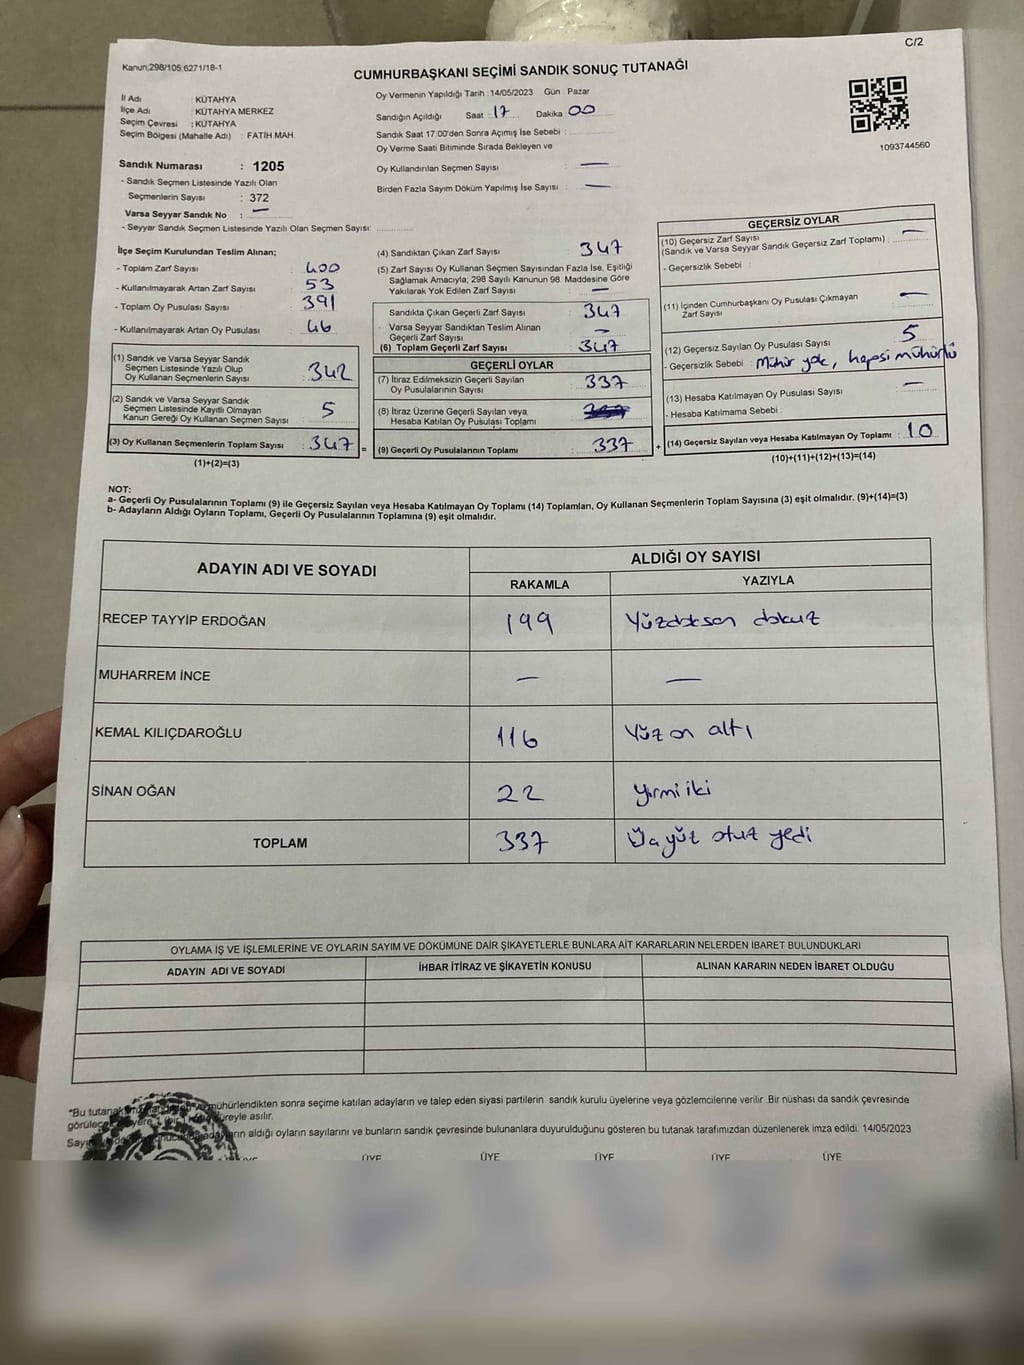 C/2
Kanun;298/105;6271/18-1
CUMHURBAŞKANI SEÇİMİ SANDIK SONUÇ TUTANAĞI
İl Adı : KÜTAHYA
İlçe Adı : KÜTAHYA MERKEZ
Seçim Çevresi : KÜTAHYA
Seçim Bölgesi (Mahalle Adı) : FATİH MAH.
Sandık Numarası : 1205
- Sandık Seçmen Listesinde Yazılı Olan
Seçmenlerin Sayısı : 372
Varsa Seyyar Sandık No : —
- Seyyar Sandık Seçmen Listesinde Yazılı Olan Seçmen Sayısı:
Oy Vermenin Yapıldığı Tarih : 14/05/2023 Gün : Pazar
Sandığın Açıldığı Saat : 17 Dakika : 00
Sandık Saat 17:00'den Sonra Açımış İse Sebebi :
Oy Verme Saati Bitiminde Sırada Bekleyen ve
Oy Kullandırılan Seçmen Sayısı : —
Birden Fazla Sayım Döküm Yapılmış İse Sayısı : —
1093744560
İlçe Seçim Kurulundan Teslim Alınan;
- Toplam Zarf Sayısı : 400
- Kullanılmayarak Artan Zarf Sayısı : 53
- Toplam Oy Pusulası Sayısı : 391
- Kullanılmayarak Artan Oy Pusulası : 46
(1) Sandık ve Varsa Seyyar Sandık
Seçmen Listesinde Yazılı Olup
Oy Kullanan Seçmenlerin Sayısı : 342
(2) Sandık ve Varsa Seyyar Sandık
Seçmen Listesinde Kayıtlı Olmayan
Kanun Gereği Oy Kullanan Seçmen Sayısı : 5
(3) Oy Kullanan Seçmenlerin Toplam Sayısı : 347 =
(1)+(2)=(3)
(4) Sandıktan Çıkan Zarf Sayısı : 347
(5) Zarf Sayısı Oy Kullanan Seçmen Sayısından Fazla İse, Eşitliği
Sağlamak Amacıyla, 298 Sayılı Kanunun 98. Maddesine Göre
Yakılarak Yok Edilen Zarf Sayısı : —
Sandıkta Çıkan Geçerli Zarf Sayısı : 347
Varsa Seyyar Sandıktan Teslim Alınan
Geçerli Zarf Sayısı : —
(6) Toplam Geçerli Zarf Sayısı : 347
GEÇERLİ OYLAR
(7) İtiraz Edilmeksizin Geçerli Sayılan
Oy Pusulalarının Sayısı : 337
(8) İtiraz Üzerine Geçerli Sayılan veya
Hesaba Katılan Oy Pusulası Toplamı :
(9) Geçerli Oy Pusulalarının Toplamı : 337 +
GEÇERSİZ OYLAR
(10) Geçersiz Zarf Sayısı : —
(Sandık ve Varsa Seyyar Sandık Geçersiz Zarf Toplamı)
- Geçersizlik Sebebi :
(11) İçinden Cumhurbaşkanı Oy Pusulası Çıkmayan
Zarf Sayısı : —
(12) Geçersiz Sayılan Oy Pusulası Sayısı : 5
- Geçersizlik Sebebi : Mühür yok, hepsi mühürlü
(13) Hesaba Katılmayan Oy Pusulası Sayısı : —
- Hesaba Katılmama Sebebi :
(14) Geçersiz Sayılan veya Hesaba Katılmayan Oy Toplamı : 10
(10)+(11)+(12)+(13)=(14)
NOT:
a- Geçerli Oy Pusulalarının Toplamı (9) ile Geçersiz Sayılan veya Hesaba Katılmayan Oy Toplamı (14) Toplamları, Oy Kullanan Seçmenlerin Toplam Sayısına (3) eşit olmalıdır. (9)+(14)=(3)
b- Adayların Aldığı Oyların Toplamı, Geçerli Oy Pusulalarının Toplamına (9) eşit olmalıdır.
ADAYIN ADI VE SOYADI ALDIĞI OY SAYISI
RAKAMLA YAZIYLA
RECEP TAYYİP ERDOĞAN 199 Yüzdoksan dokuz
MUHARREM İNCE — —
KEMAL KILIÇDAROĞLU 116 Yüz on altı
SİNAN OĞAN 22 yirmi iki
TOPLAM 337 Üç yüz otuz yedi
OYLAMA İŞ VE İŞLEMLERİNE VE OYLARIN SAYIM VE DÖKÜMÜNE DAİR ŞİKAYETLERLE BUNLARA AİT KARARLARIN NELERDEN İBARET BULUNDUKLARI
ADAYIN ADI VE SOYADI İHBAR İTİRAZ VE ŞİKAYETİN KONUSU ALINAN KARARIN NEDEN İBARET OLDUĞU
*Bu tutanak mühürlendikten sonra seçime katılan adayların ve talep eden siyasi partilerin sandık kurulu üyelerine veya gözlemcilerine verilir. Bir nüshası da sandık çevresinde
süreyle asılır.
aldığı oyların sayılarını ve bunların sandık çevresinde bulunanlara duyurulduğunu gösteren bu tutanak tarafımızdan düzenlenerek imza edildi. 14/05/2023
ÜYE ÜYE ÜYE ÜYE ÜYE